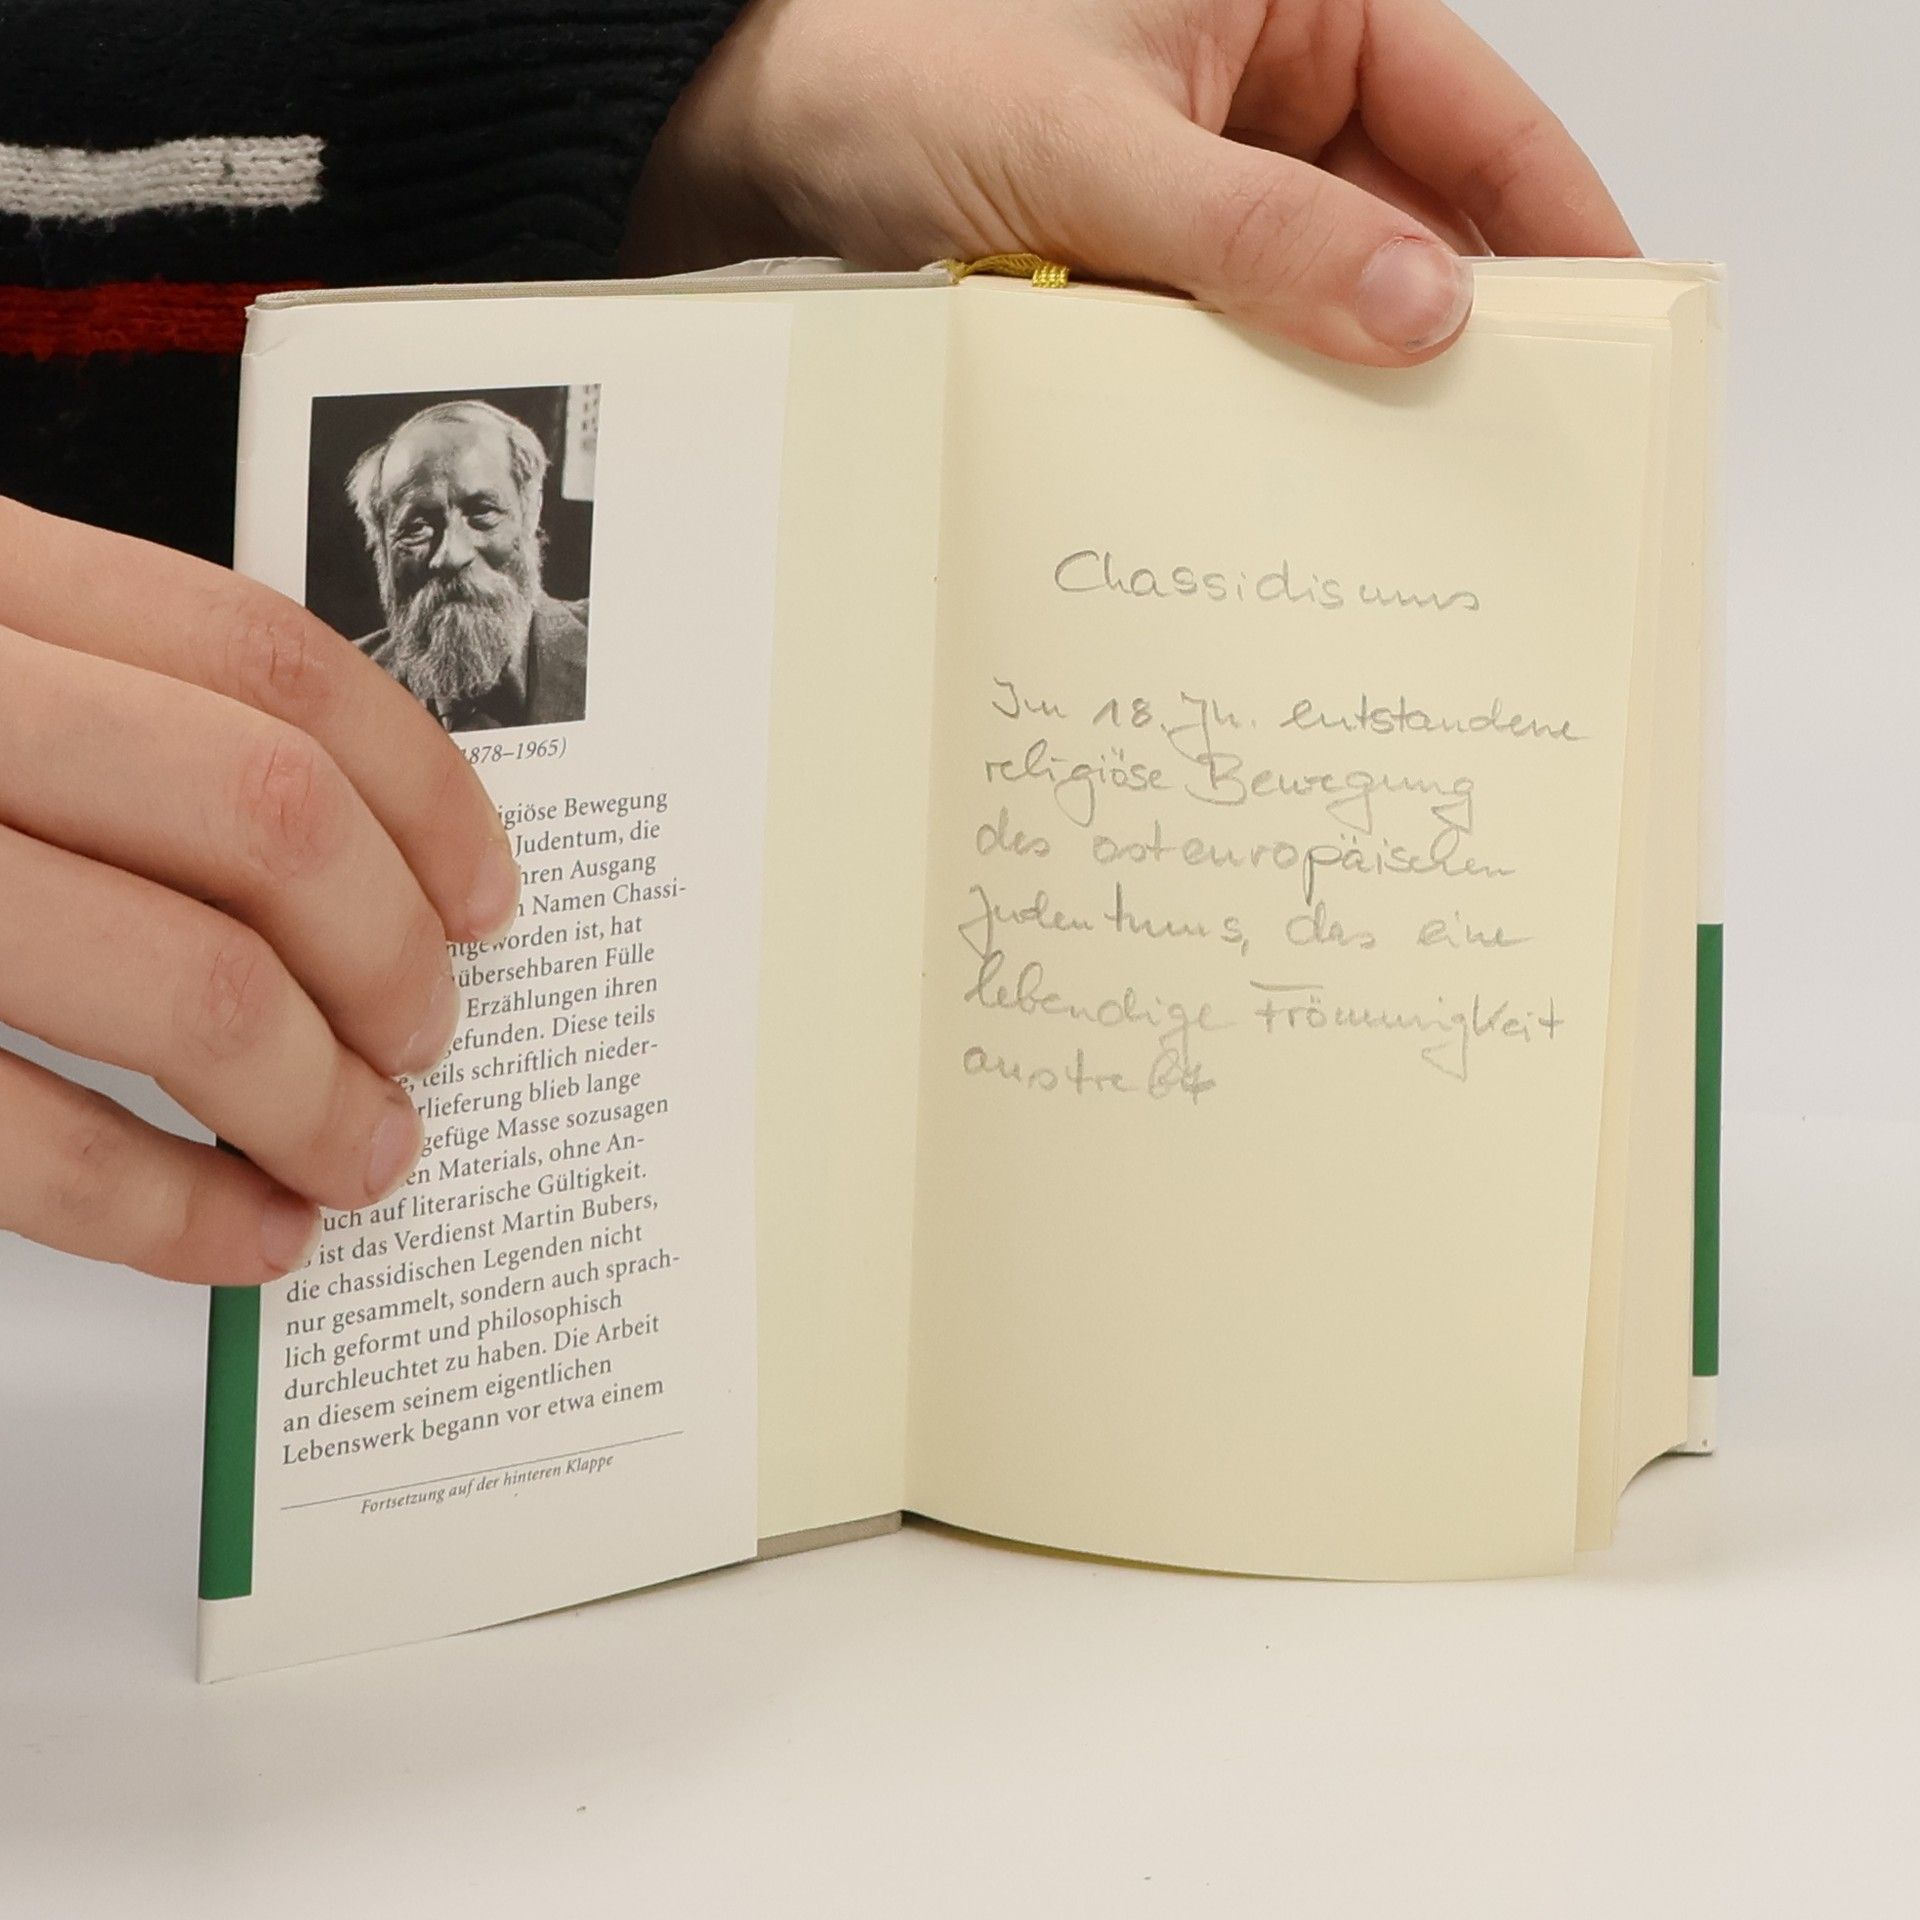 1878–1965)
igiöse Bewegung
Judentum, die
hren Ausgang
n Namen Chassi-
ntgeworden ist, hat
übersehbaren Fülle
Erzählungen ihren
gefunden. Diese teils
e, teils schriftlich nieder-
rlieferung blieb lange
gefüge Masse sozusagen
en Materials, ohne An-
uch auf literarische Gültigkeit.
ist das Verdienst Martin Bubers,
die chassidischen Legenden nicht
nur gesammelt, sondern auch sprach-
lich geformt und philosophisch
durchleuchtet zu haben. Die Arbeit
an diesem seinem eigentlichen
Lebenswerk begann vor etwa einem
Fortsetzung auf der hinteren Klappe
Chassidismus
Im 18. Jh. entstandene
religiöse Bewegung
des osteuropäischen
Judentums, das eine
lebendige Frömmigkeit
anstrebt